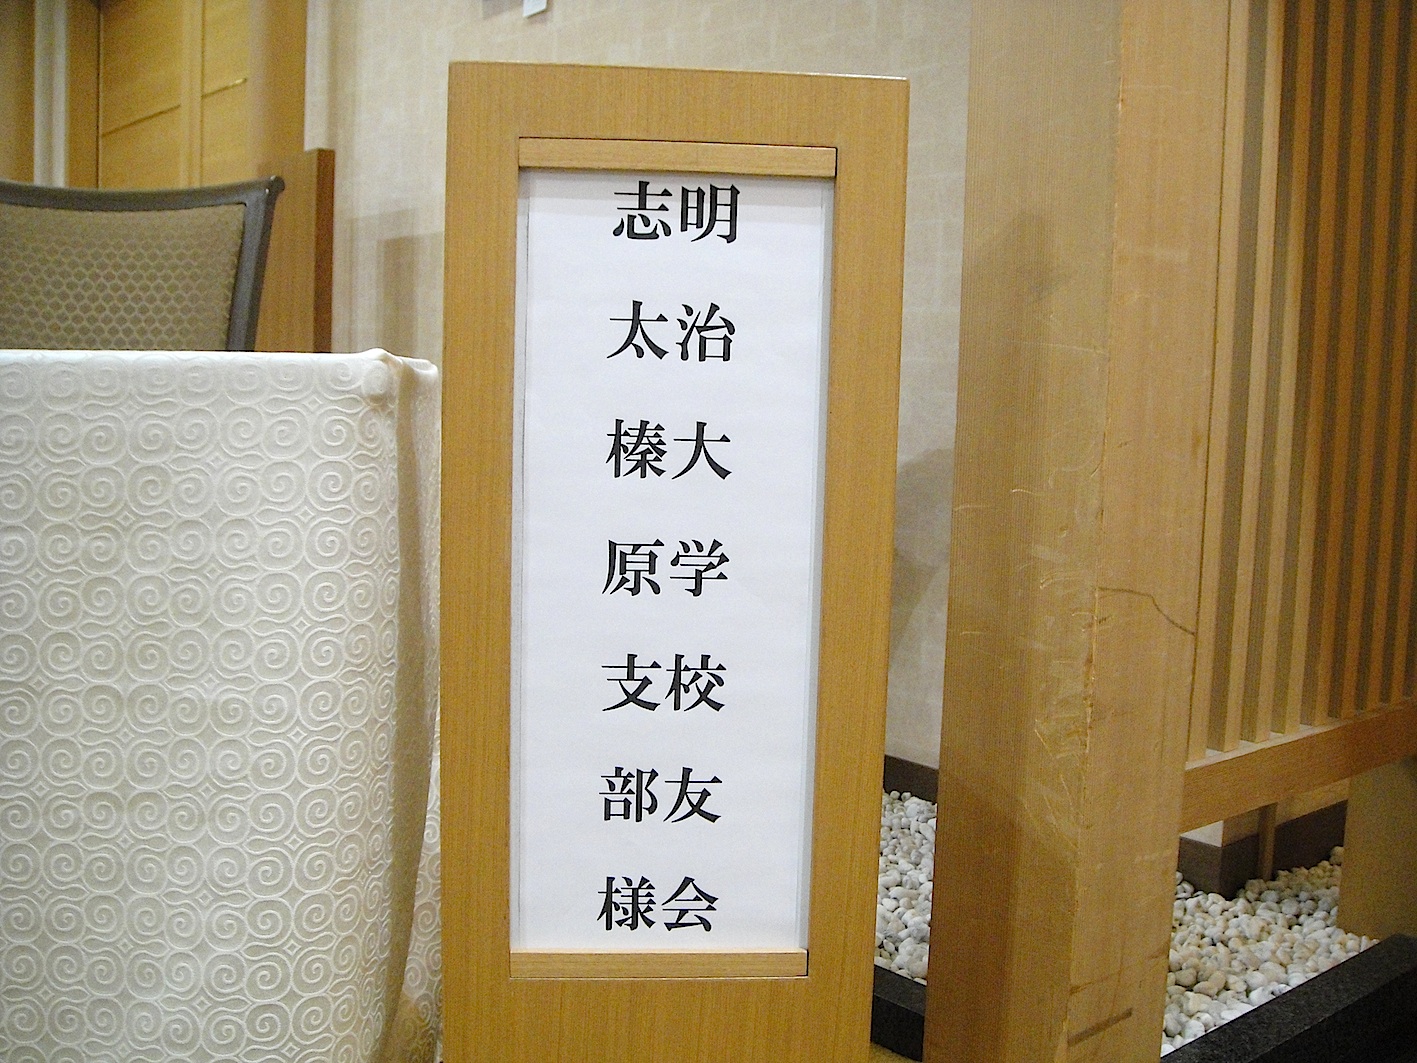 明治大学校友会
志太榛原支部様